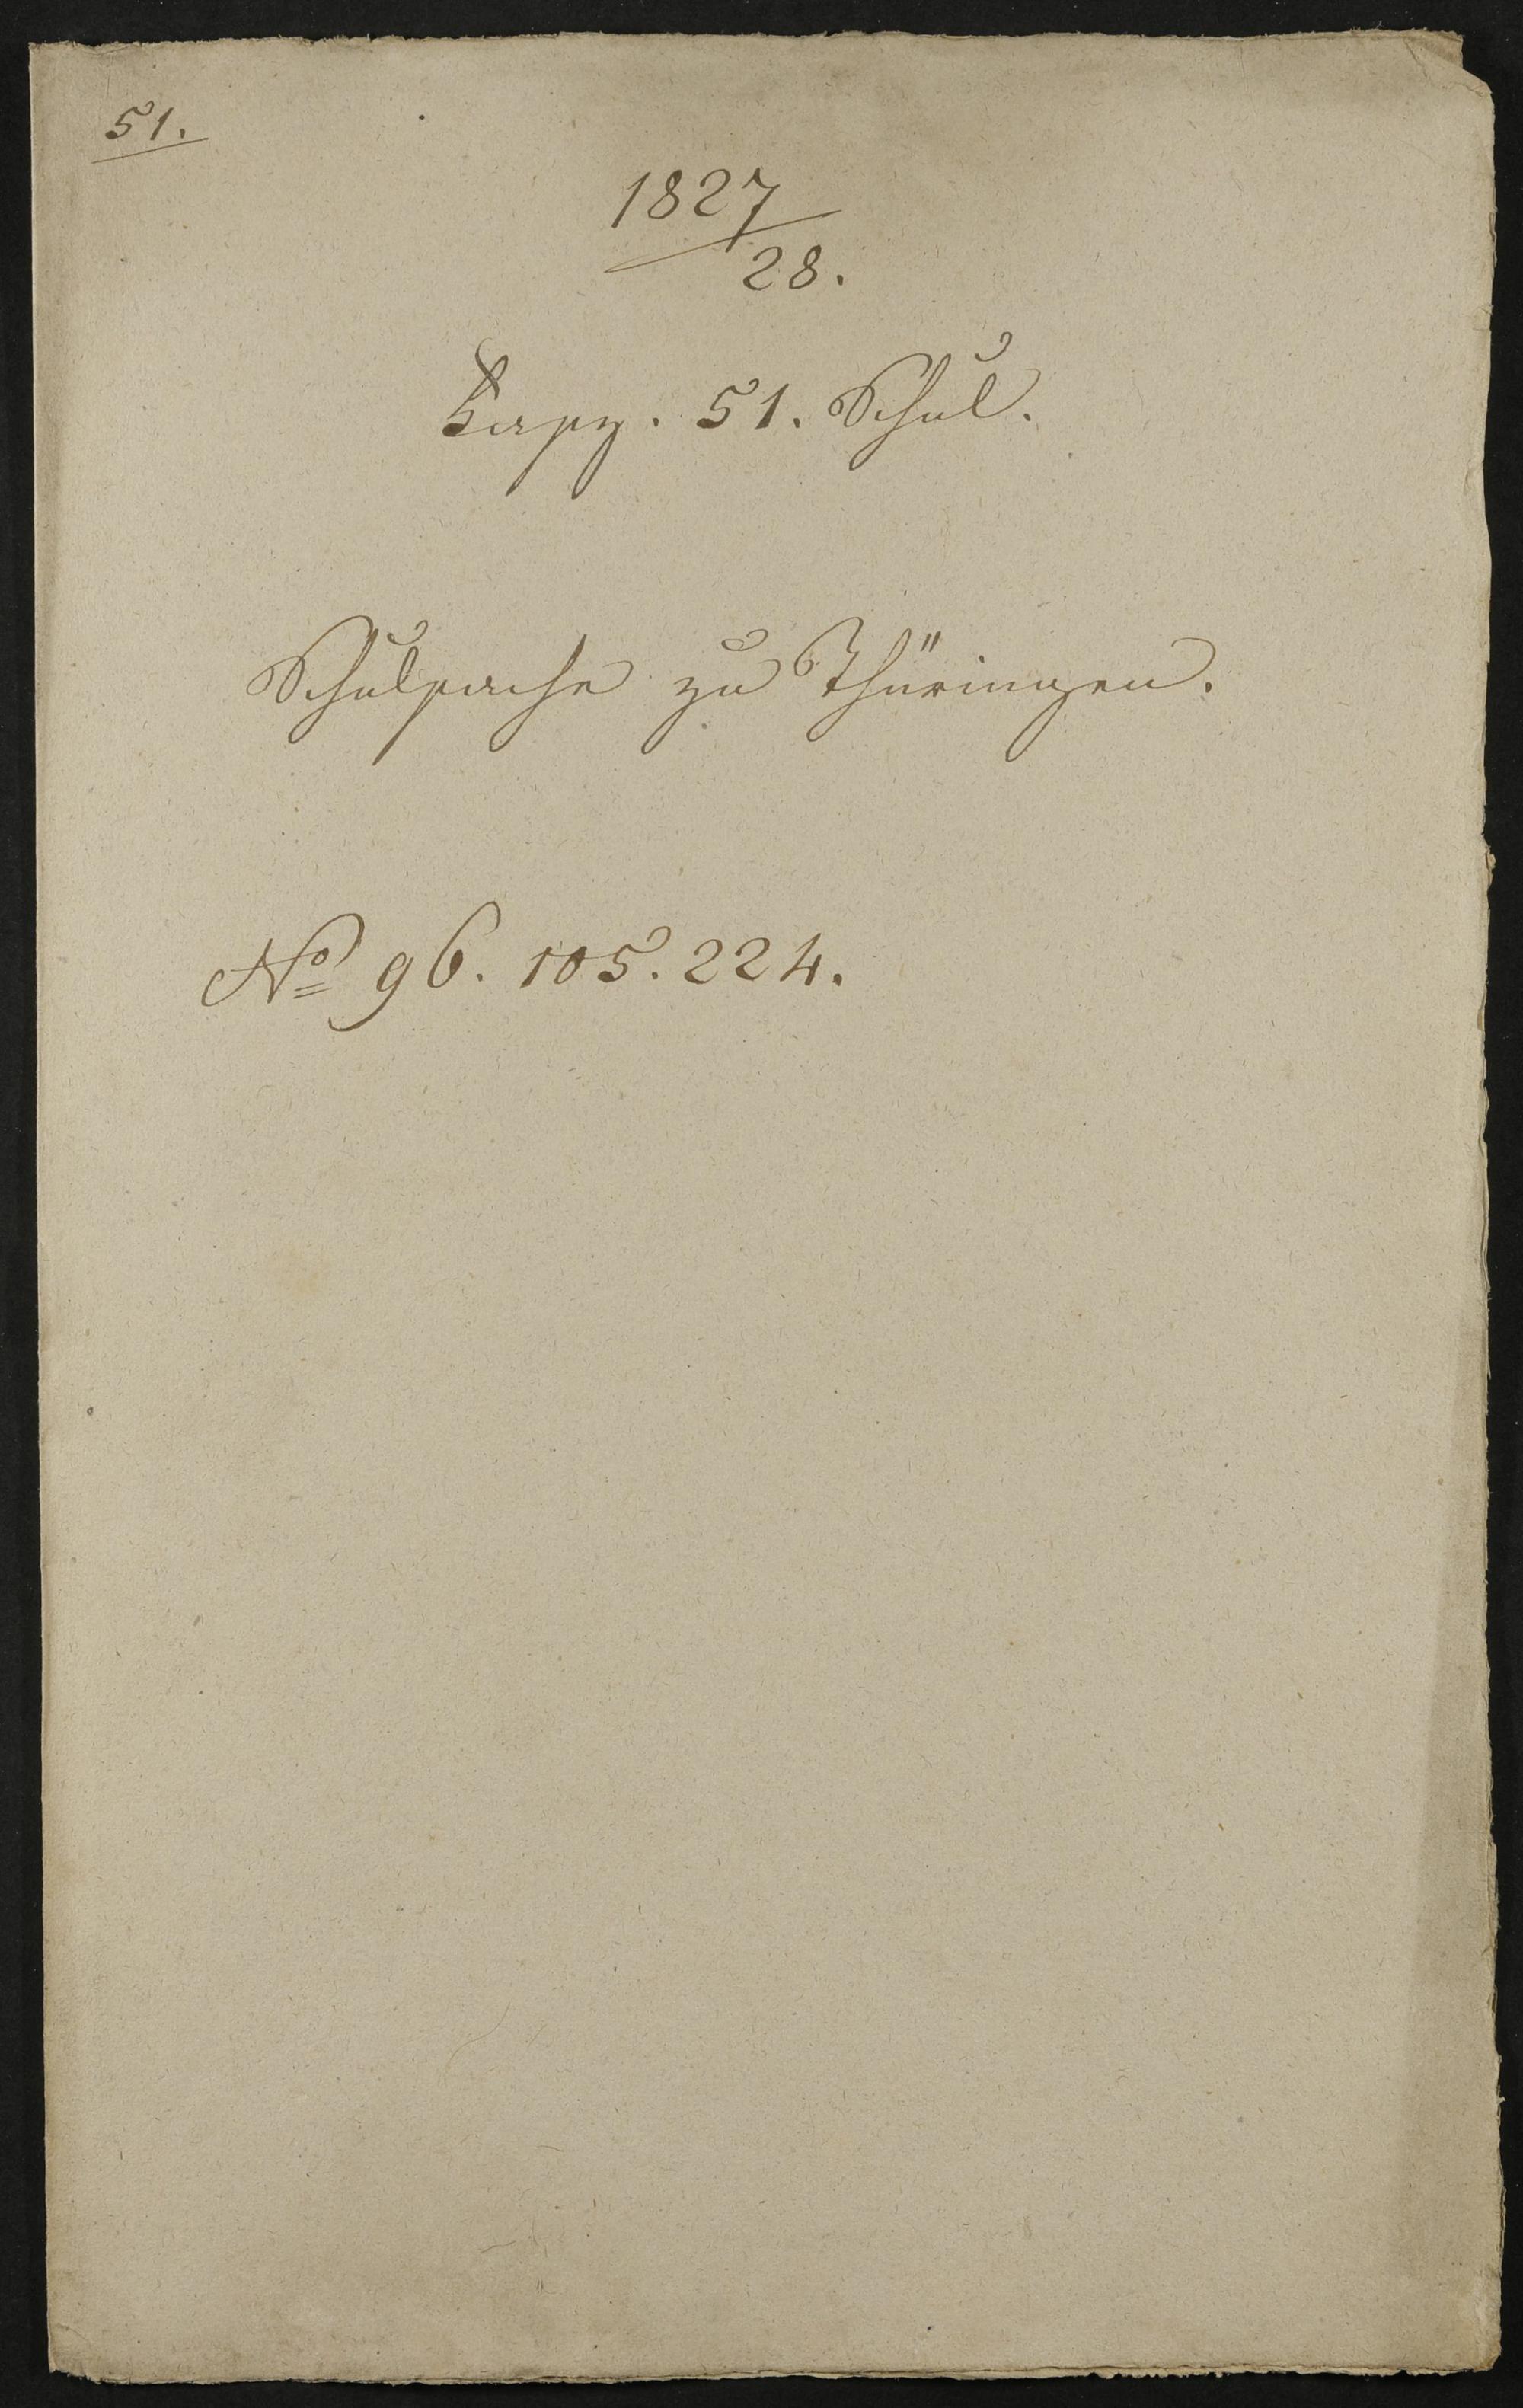 51.
1827
28.
Fasz. 51. Schul.
Schulsache zu Thüringen.
No 96. 105. 224.